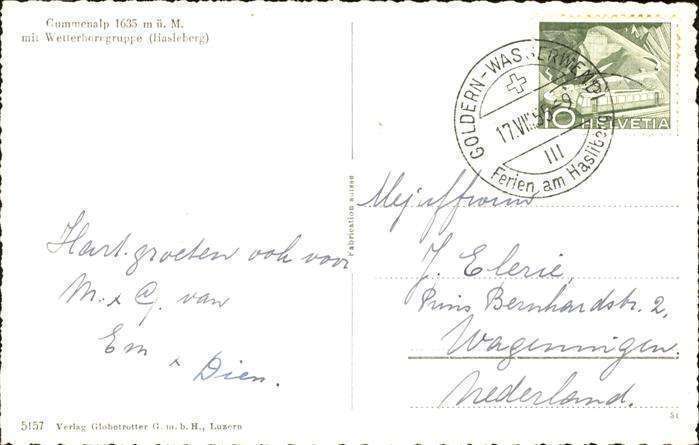 Gummenalp 1635 m ü. M.
mit Wetterhorngruppe (Hasleberg)
10 HELVETIA
GOLDERN-WASSERWENDI
17.VIII.55-19
III
Ferien am Hasliberg
Fabrication suisse
Hart. groeten ook voor
M. & G. van
Em & Dien.
Mejuffrouw
J. Elerie,
Prins Bernhardstr. 2,
Wageningen.
Nederland.
5157 Verlag Globetrotter G.m.b.H., Luzern